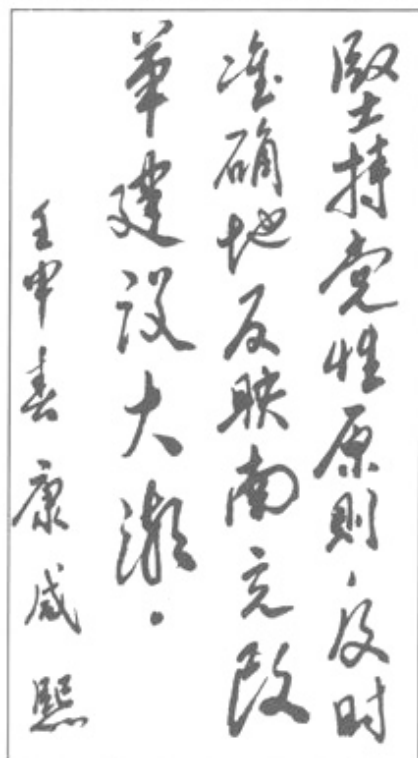 堅持党性原则，及时
准确地反映南充改
革建设大潮。
壬申春 康咸熙